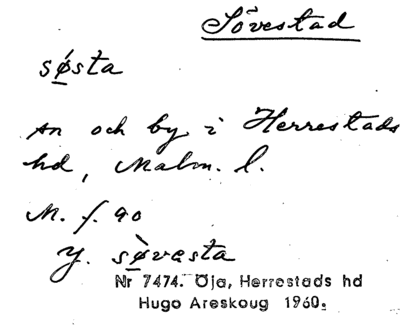 Sövestad
sø̱sta
sn och by i Herrestads
hd, Malm. l.
M. f. 90
Y. sø̀vəsta
Nr 7474. Öja, Herrestads hd
Hugo Areskoug 1960.